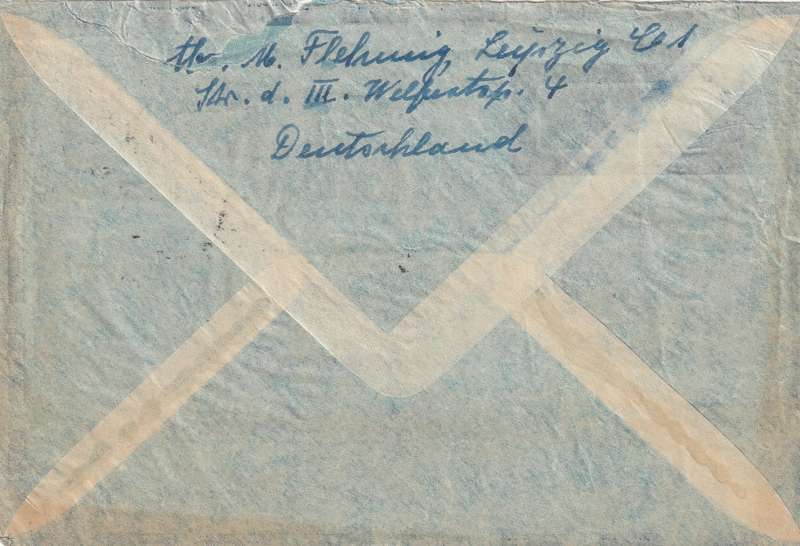 M. Flehmig, Leipzig C1
Str. d. III. Weltfestsp. 4
Deutschland